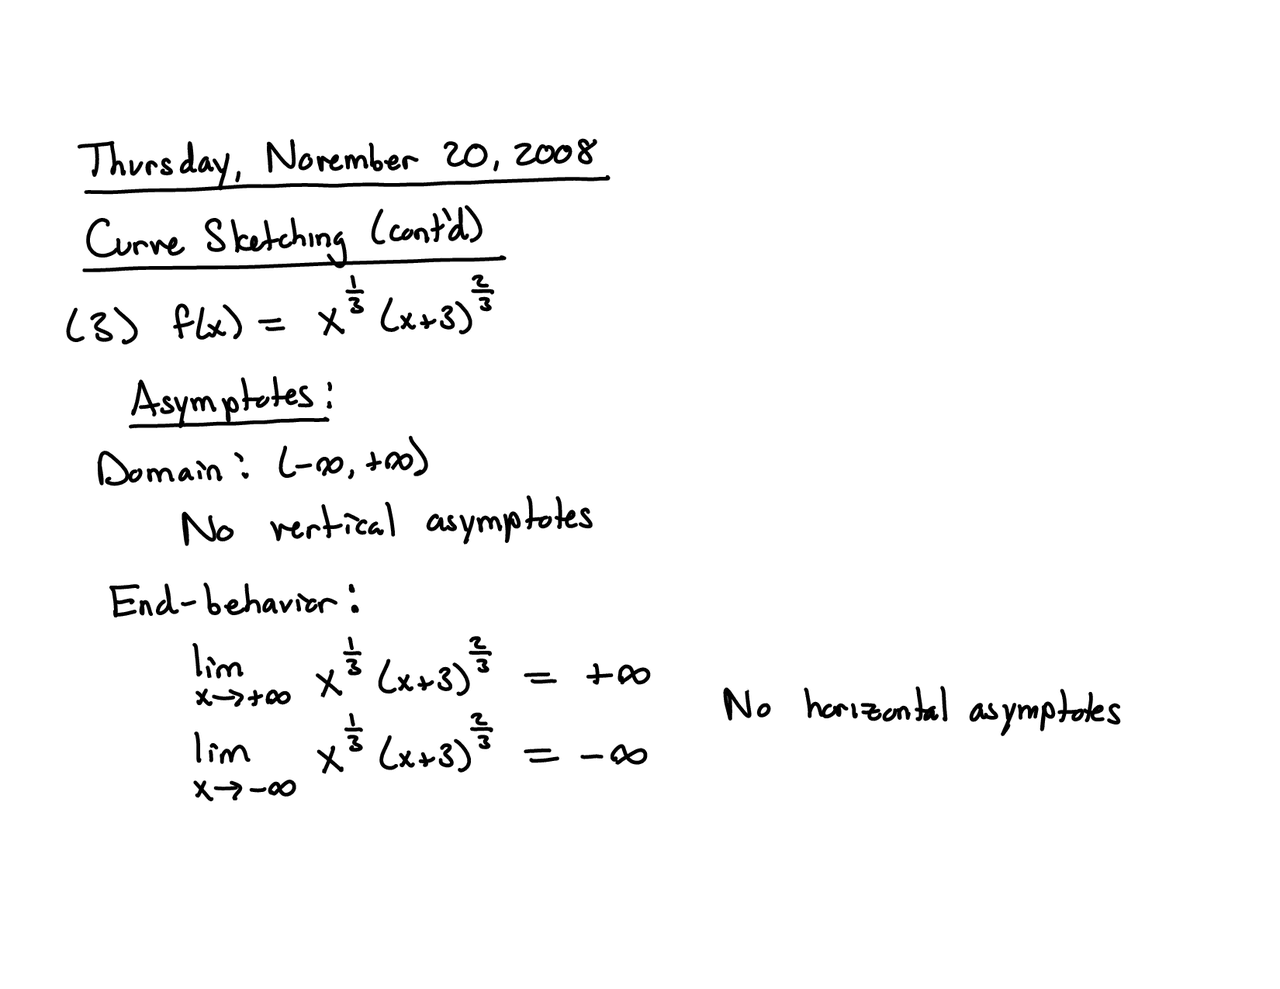 Thursday, November 20, 2008
Curve Sketching (cont'd)
(3) f(x) = x^(1/3) (x+3)^(2/3)
Asymptotes:
Domain: (-∞, +∞)
No vertical asymptotes
End-behavior:
lim x→+∞ x^(1/3) (x+3)^(2/3) = +∞
No horizontal asymptotes
lim x→-∞ x^(1/3) (x+3)^(2/3) = -∞